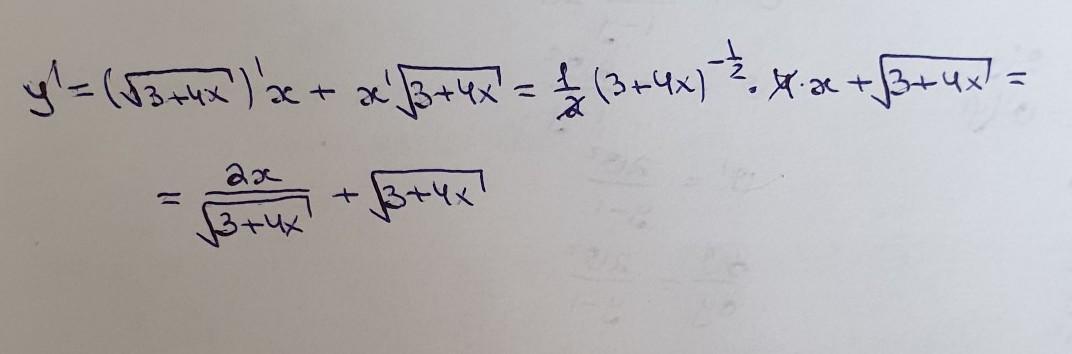 y' = (√3+4x)'x + x'√3+4x = 1/2 (3+4x)^-1/2 · 4·x + √3+4x =
= 2x/√3+4x + √3+4x